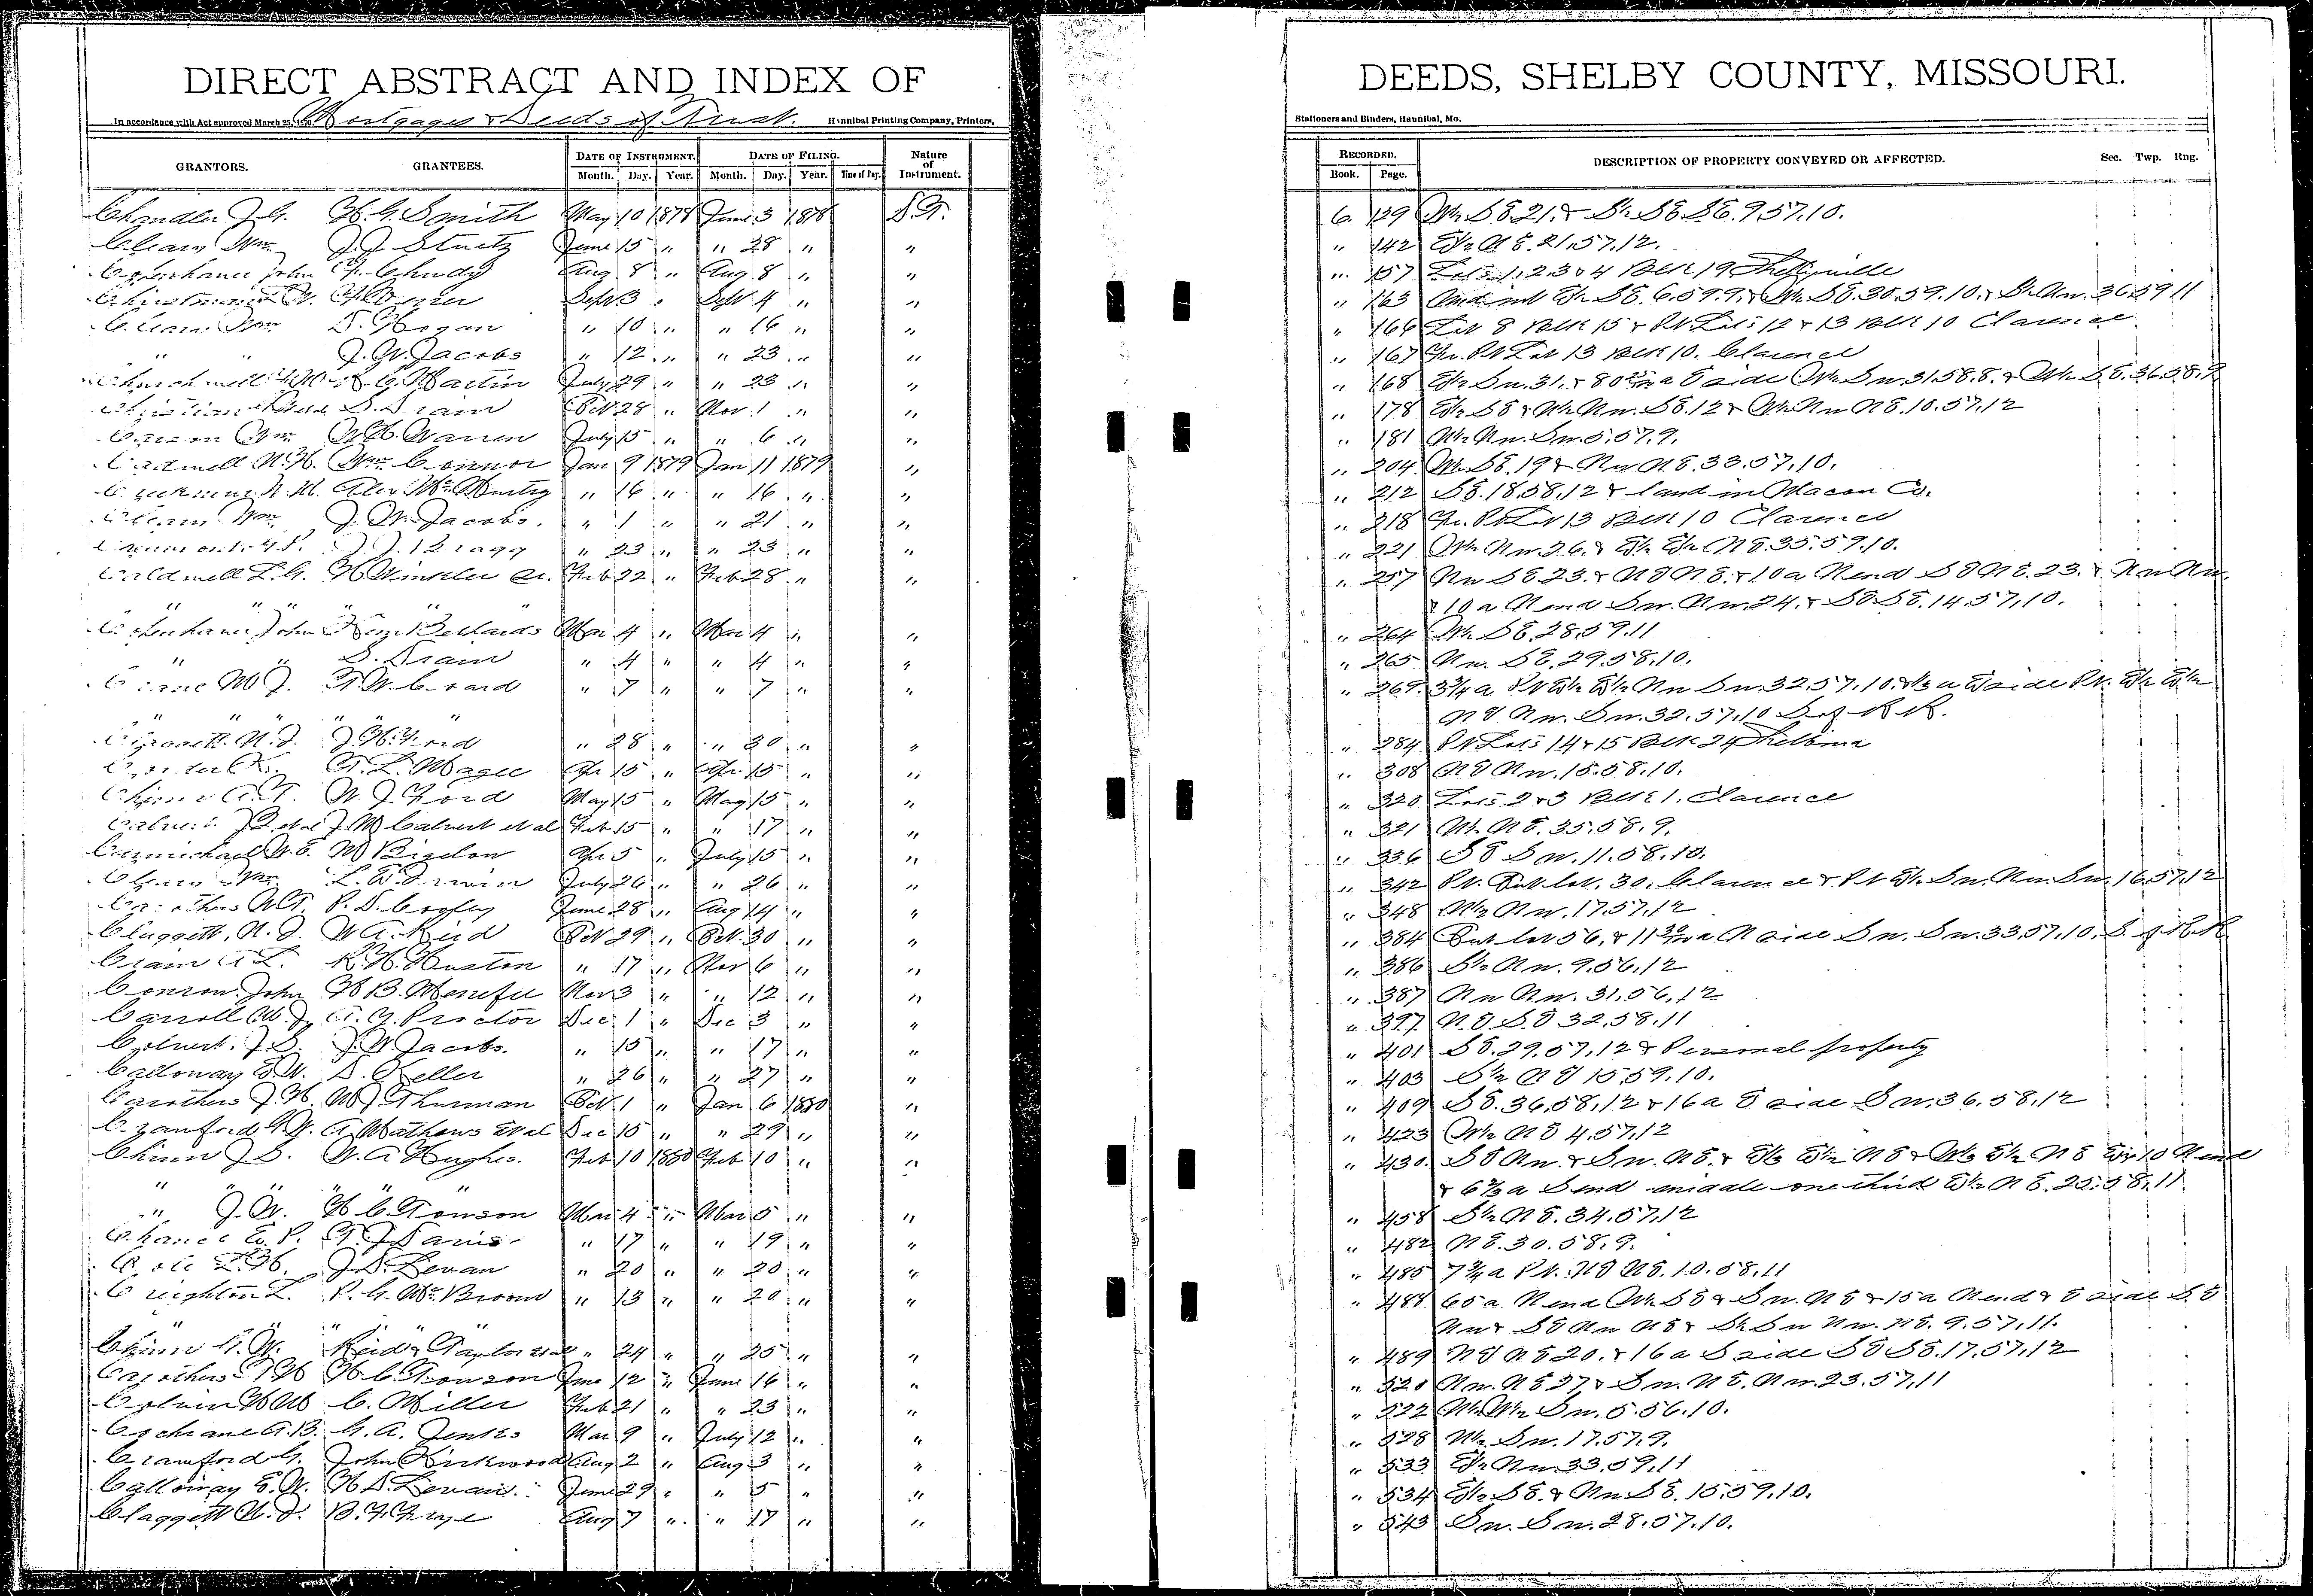 DIRECT ABSTRACT AND INDEX OF
Mortgages & Deeds of Trust.
In accordance with Act approved March 25, 1870. Hannibal Printing Company, Printers,
GRANTORS. GRANTEES. DATE OF INSTRUMENT. DATE OF FILING. Nature of Instrument.
Month. Day. Year. Month. Day. Year. Time of Day.
Chandler J.G. H.G. Smith May 10 1878 June 3 1878 D.T.
Cleary Wm J.J. Stuetz June 15 " " 28 " "
Copenhaver John F. Chudy Aug 8 " Aug 8 " "
Sept 3 " Sept 4 " "
Wm D. Hogan " 10 " " 16 " "
" " J.W. Jacobs " 12 " " 23 " "
Churchwell Martin July 29 " " 23 " "
Christian S. Drain Oct 28 " Nov 1 " "
Carson Wm W.H. Warren July 15 " " 6 " "
Cadwell N.H. Wm Connor Jan 9 1879 Jan 11 1879 "
Alex Mc " 16 " " 16 " "
Wm J.W. Jacobs. " 1 " " 21 " "
J.J. Bragg " 23 " " 23 " "
Caldwell L.G. H Winkler Sr. Feb 22 " Feb 28 " "
" " " " "
Copenhaver John Bethards Mar 4 " Mar 4 " "
" " S. Drain " 4 " " 4 " "
M.J. " 7 " " 7 " "
" " " " "
N.J. J.H. Ford " 28 " " 30 " "
T.L. Magee Apr 15 " Apr 15 " "
Chinn A.T. W.J. Ford May 15 " May 15 " "
Calvert et al J.M Calvert et al Feb 15 " " 17 " "
Carmichael W.E. M Bigelow Apr 5 " July 15 " "
Cleary Wm L.E. Irwin July 26 " " 26 " "
Carothers P.D. June 28 " Aug 14 " "
Claggett, N.J. W A. Reid Oct 29 " Oct. 30 " "
Crain A L. R.H. Huston " 17 " Nov 6 " "
Conrow John H B. Menefee Nov 3 " " 12 " "
Carroll M.J. A.Y. Proctor Dec. 1 " Dec 3 " "
Calvert. J.S. J.W. Jacobs. " 15 " " 17 " "
Calloway E.W. D. Keller " 26 " " 27 " "
Carothers J.H. M J Thurman Oct 1 " Jan 6 1880 "
Crawford A Mathews et al Dec 15 " " 29 " "
Chinn J S. W. A Hughes. Feb 10 1880 Feb 10 " "
" " " " "
" J.W. H C. Towson Mar 4 " Mar 5 " "
Chance E. P. T.J. Davis " 17 " " 19 " "
J.D. Levan " 20 " " 20 " "
Creighton L. P.G. McBroom " 13 " " 20 " "
" " " " "
Chinn Reid & Taylor et al " 24 " " 25 " "
Carothers H.C. Towson June 12 " June 16 " "
Colvin C. Miller Feb 21 " " 23 " "
Cochrane A.B. G. A. Jenks Mar 9 " July 12 " "
Crawford G. John Kirkwood Aug 2 " Aug 3 " "
Calloway E.W. H.D. Levan. June 29 " " 5 " "
Claggett N.J. B.F. Frye Aug 7 " " 17 " "
DEEDS, SHELBY COUNTY, MISSOURI.
Stationers and Binders, Hannibal, Mo.
RECORDED. DESCRIPTION OF PROPERTY CONVEYED OR AFFECTED. Sec. Twp. Rng.
Book. Page.
6 129 W½ SE 21. & S½ SE SE. 9.57.10.
" 142 E½ NE. 21.57.12.
" 157 Lots 1, 2 3 & 4 Blk 19 Shelbyville
" 163 Und int E½ SE. 6.59.9. & W½ SE. 30.59.10. & S½ Nw. 36.59 11
" 166 Lot 8 Blk 15 & Pt Lots 12 & 13 Blk 10 Clarence
" 167 Fr. Pt Lot 13 Blk 10. Clarence
" 168 E½ Sw. 31. & 80 a E side W½ Sw. 31.58.8. & W½ SE. 36.58.9
" 178 E½ SE & W½ Nw. SE. 12 & W½ Nw NE. 10.57.12
" 181 Nw. Sw. 5.57.9.
" 204 W½ SE. 19 & Nw NE. 33.57.10.
" 212 SE. 18.58.12 & land in Macon Co.
" 218 Fr. Pt Lot 13 Blk 10 Clarence
" 221 W½ Nw. 26. & E½ E½ NE. 35.59.10.
" 257 Nw SE 23. & NE NE. & 10 a N end SE NE. 23. & Nw Nw.
& 10 a N end Sw. Nw. 24. & SE SE. 14.57.10.
" 264 W½ SE. 28.59.11
" 265 Nw. SE. 29.58.10.
" 269. 3¾ a Pt E½ E½ Nw Sw. 32.57.10. E side Pt. E½ E½
NE Nw. Sw. 32.57.10 S of R R.
" 284 Pt Lots 14 & 15 Blk 24 Shelbina
" 308 NE Nw. 15.58.10.
" 320 Lots 2 & 3 Blk 1. Clarence
" 321 NE. 35.58.9.
" 336 SE Sw. 11.58.10.
" 342 Pt. Out lot. 30. Clarence & Pt E½ Sw. Nw. Sw. 16.57.12
" 348 Nw. 17.57.12
" 384 Out lot 56. & 11 a N side Sw. Sw. 33.57.10. S. of R.R
" 386 S½ Nw. 9.56.12
" 387 Nw Nw. 31.56.12
" 397 N.E S.E 32.58.11
" 401 SE. 29.57.12 & Personal property
" 403 S½ NE 15.59.10.
" 409 SE. 36.58.12 & 16 a E side Sw. 36.58.12
" 423 W½ NE 4.57.12
" 430. SE Nw. & Sw. NE. & E½ NE & E½ NE 10 N end
& 6⅔ a S end middle one third E½ NE. 22.58.11.
" 458 S½ NE. 34.57.12
" 482 NE. 30.58.9.
" 485 7¾ a Pt. NE NE. 10.58.11
" 488 65 a. N end W½ SE & Sw. NE & 15 a N end & E side SE
Nw & SE Nw NE & S½ Sw Nw. NE. 9.57.11.
" 489 NE NE 20. & 16 a S side SE SE. 17.57.12
" 520 Nw. NE 27 & Sw. NE. Nw. 23.57.11
" 522 W½ Sw. 5.56.10.
" 528 Sw. 17.57.9.
" 533 E½ Nw 33.59.11
" 534 E½ SE. & Nw SE. 15.59.10.
" 543 Sw. Sw. 28.57.10.